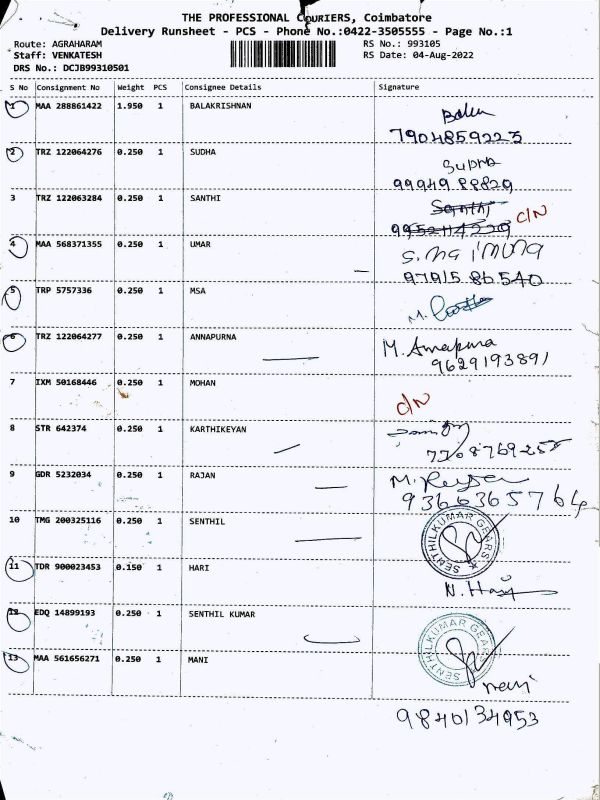 THE PROFESSIONAL COURIERS, Coimbatore
Delivery Runsheet - PCS - Phone No.:0422-3505555 - Page No.:1
Route: AGRAHARAM
RS No.: 993105
Staff: VENKATESH
RS Date: 04-Aug-2022
DRS No.: DCJB99310501
S No Consignment No Weight PCS Consignee Details Signature
1 MAA 288861422 1.950 1 BALAKRISHNAN
7904859223
2 TRZ 122064276 0.250 1 SUDHA
Sudha
99949 88829
3 TRZ 122063284 0.250 1 SANTHI
Santhi C/N
4 MAA 568371355 0.250 1 UMAR
97915 86540
5 TRP 5757336 0.250 1 MSA
M.
6 TRZ 122064277 0.250 1 ANNAPURNA
M. Annapurna
9629193891
7 IXM 50168446 0.250 1 MOHAN
C/N
8 STR 642374 0.250 1 KARTHIKEYAN
9 GDR 5232034 0.250 1 RAJAN
M.
9366365764
10 TMG 200325116 0.250 1 SENTHIL
SENTHILKUMAR GEARS
11 TDR 900023453 0.150 1 HARI
N. Hari
12 EDQ 14899193 0.250 1 SENTHIL KUMAR
SENTHILKUMAR GEARS
13 MAA 561656271 0.250 1 MANI
mani
9840134953